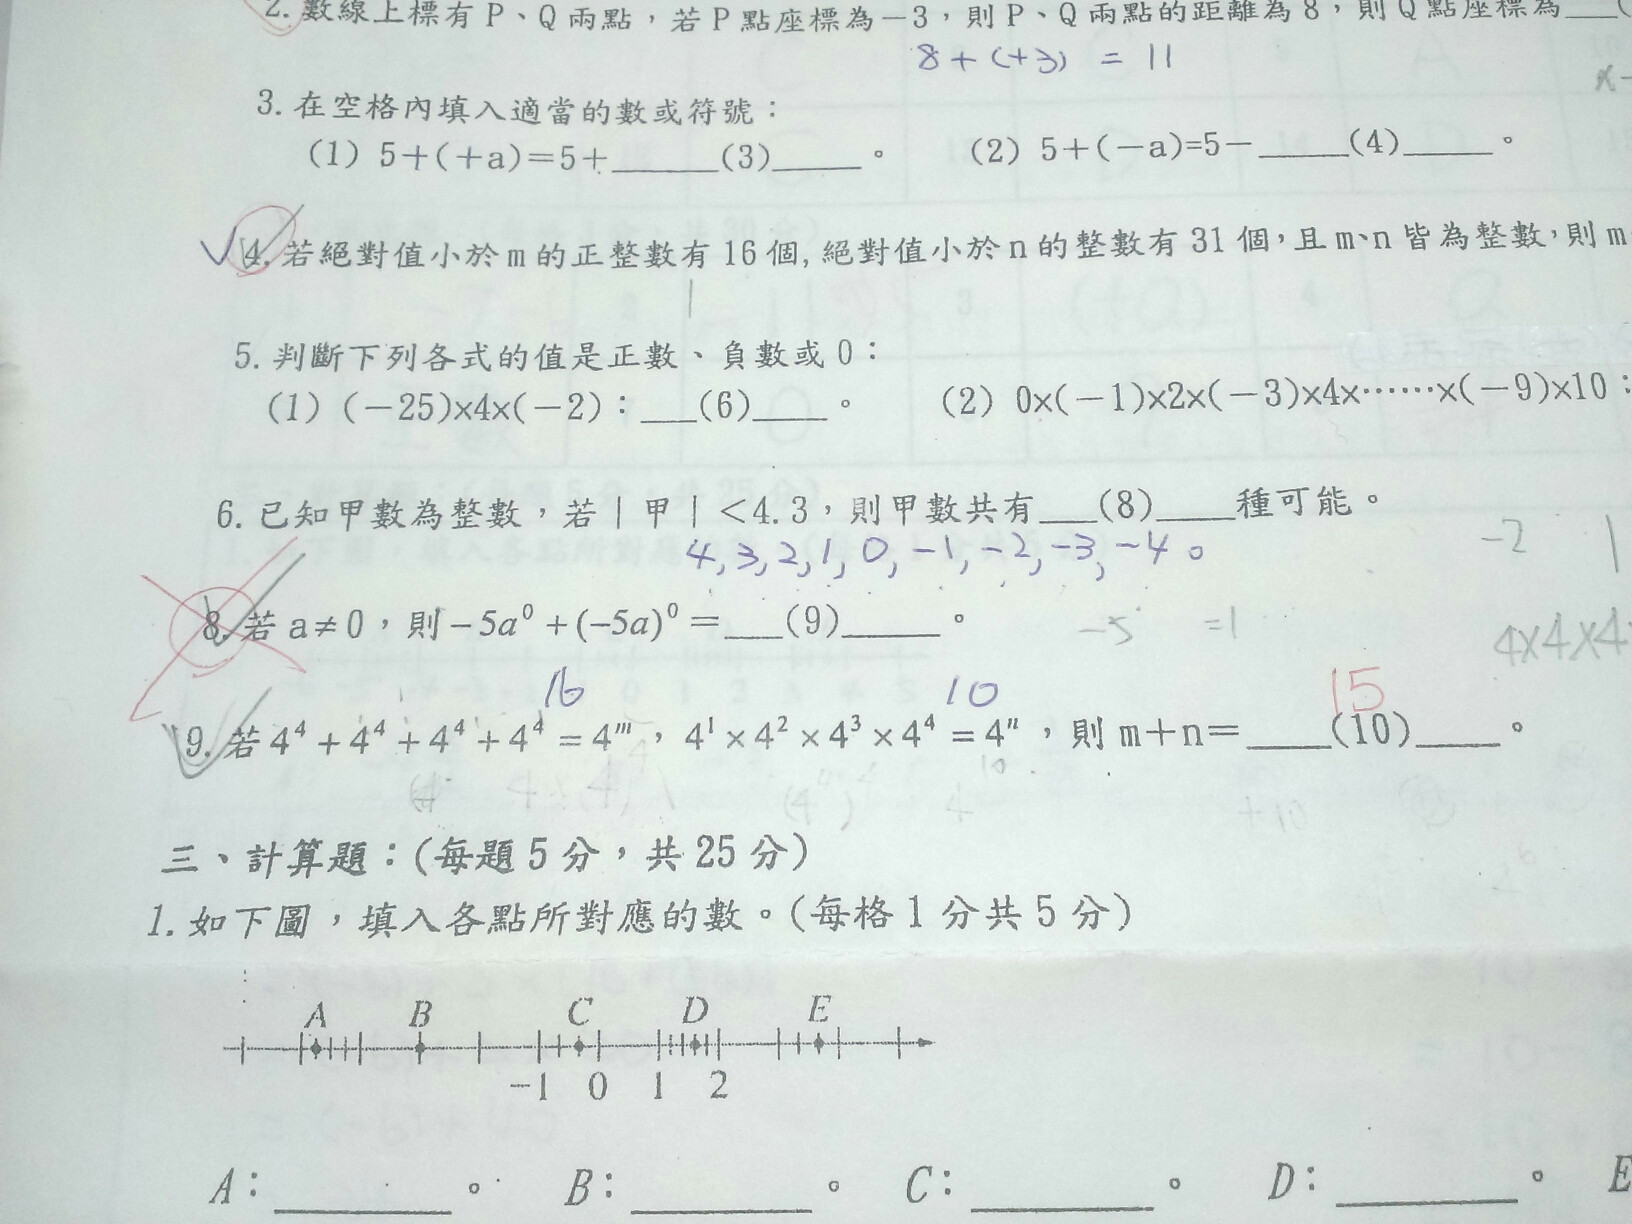 2. 數線上標有 P、Q 兩點，若 P 點座標為－3，則 P、Q 兩點的距離為 8，則 Q 點座標為___(
8+(+3) = 11
3. 在空格內填入適當的數或符號：
(1) 5+(+a)=5+______(3)_____。 (2) 5+(－a)=5－_____(4)_____。
4. 若絕對值小於 m 的正整數有 16 個, 絕對值小於 n 的整數有 31 個，且 m、n 皆為整數，則 m
5. 判斷下列各式的值是正數、負數或 0：
(1) (－25)×4×(－2)：___(6)____。 (2) 0×(－1)×2×(－3)×4×⋯⋯×(－9)×10：
6. 已知甲數為整數，若｜甲｜＜4.3，則甲數共有___(8)____種可能。
4, 3, 2, 1, 0, -1, -2, -3, -4。
-2 1
8. 若 a≠0，則 −5a⁰ + (−5a)⁰ = ___(9)_____。
-5 =1
4×4×4
16 10 15
9. 若 4⁴ + 4⁴ + 4⁴ + 4⁴ = 4ᵐ，4¹ × 4² × 4³ × 4⁴ = 4ⁿ，則 m＋n＝____(10)____。
三、計算題：(每題 5 分，共 25 分)
1. 如下圖，填入各點所對應的數。(每格 1 分共 5 分)
A B C D E
−1 0 1 2
A：_________。 B：_________。 C：_________。 D：_________。 E